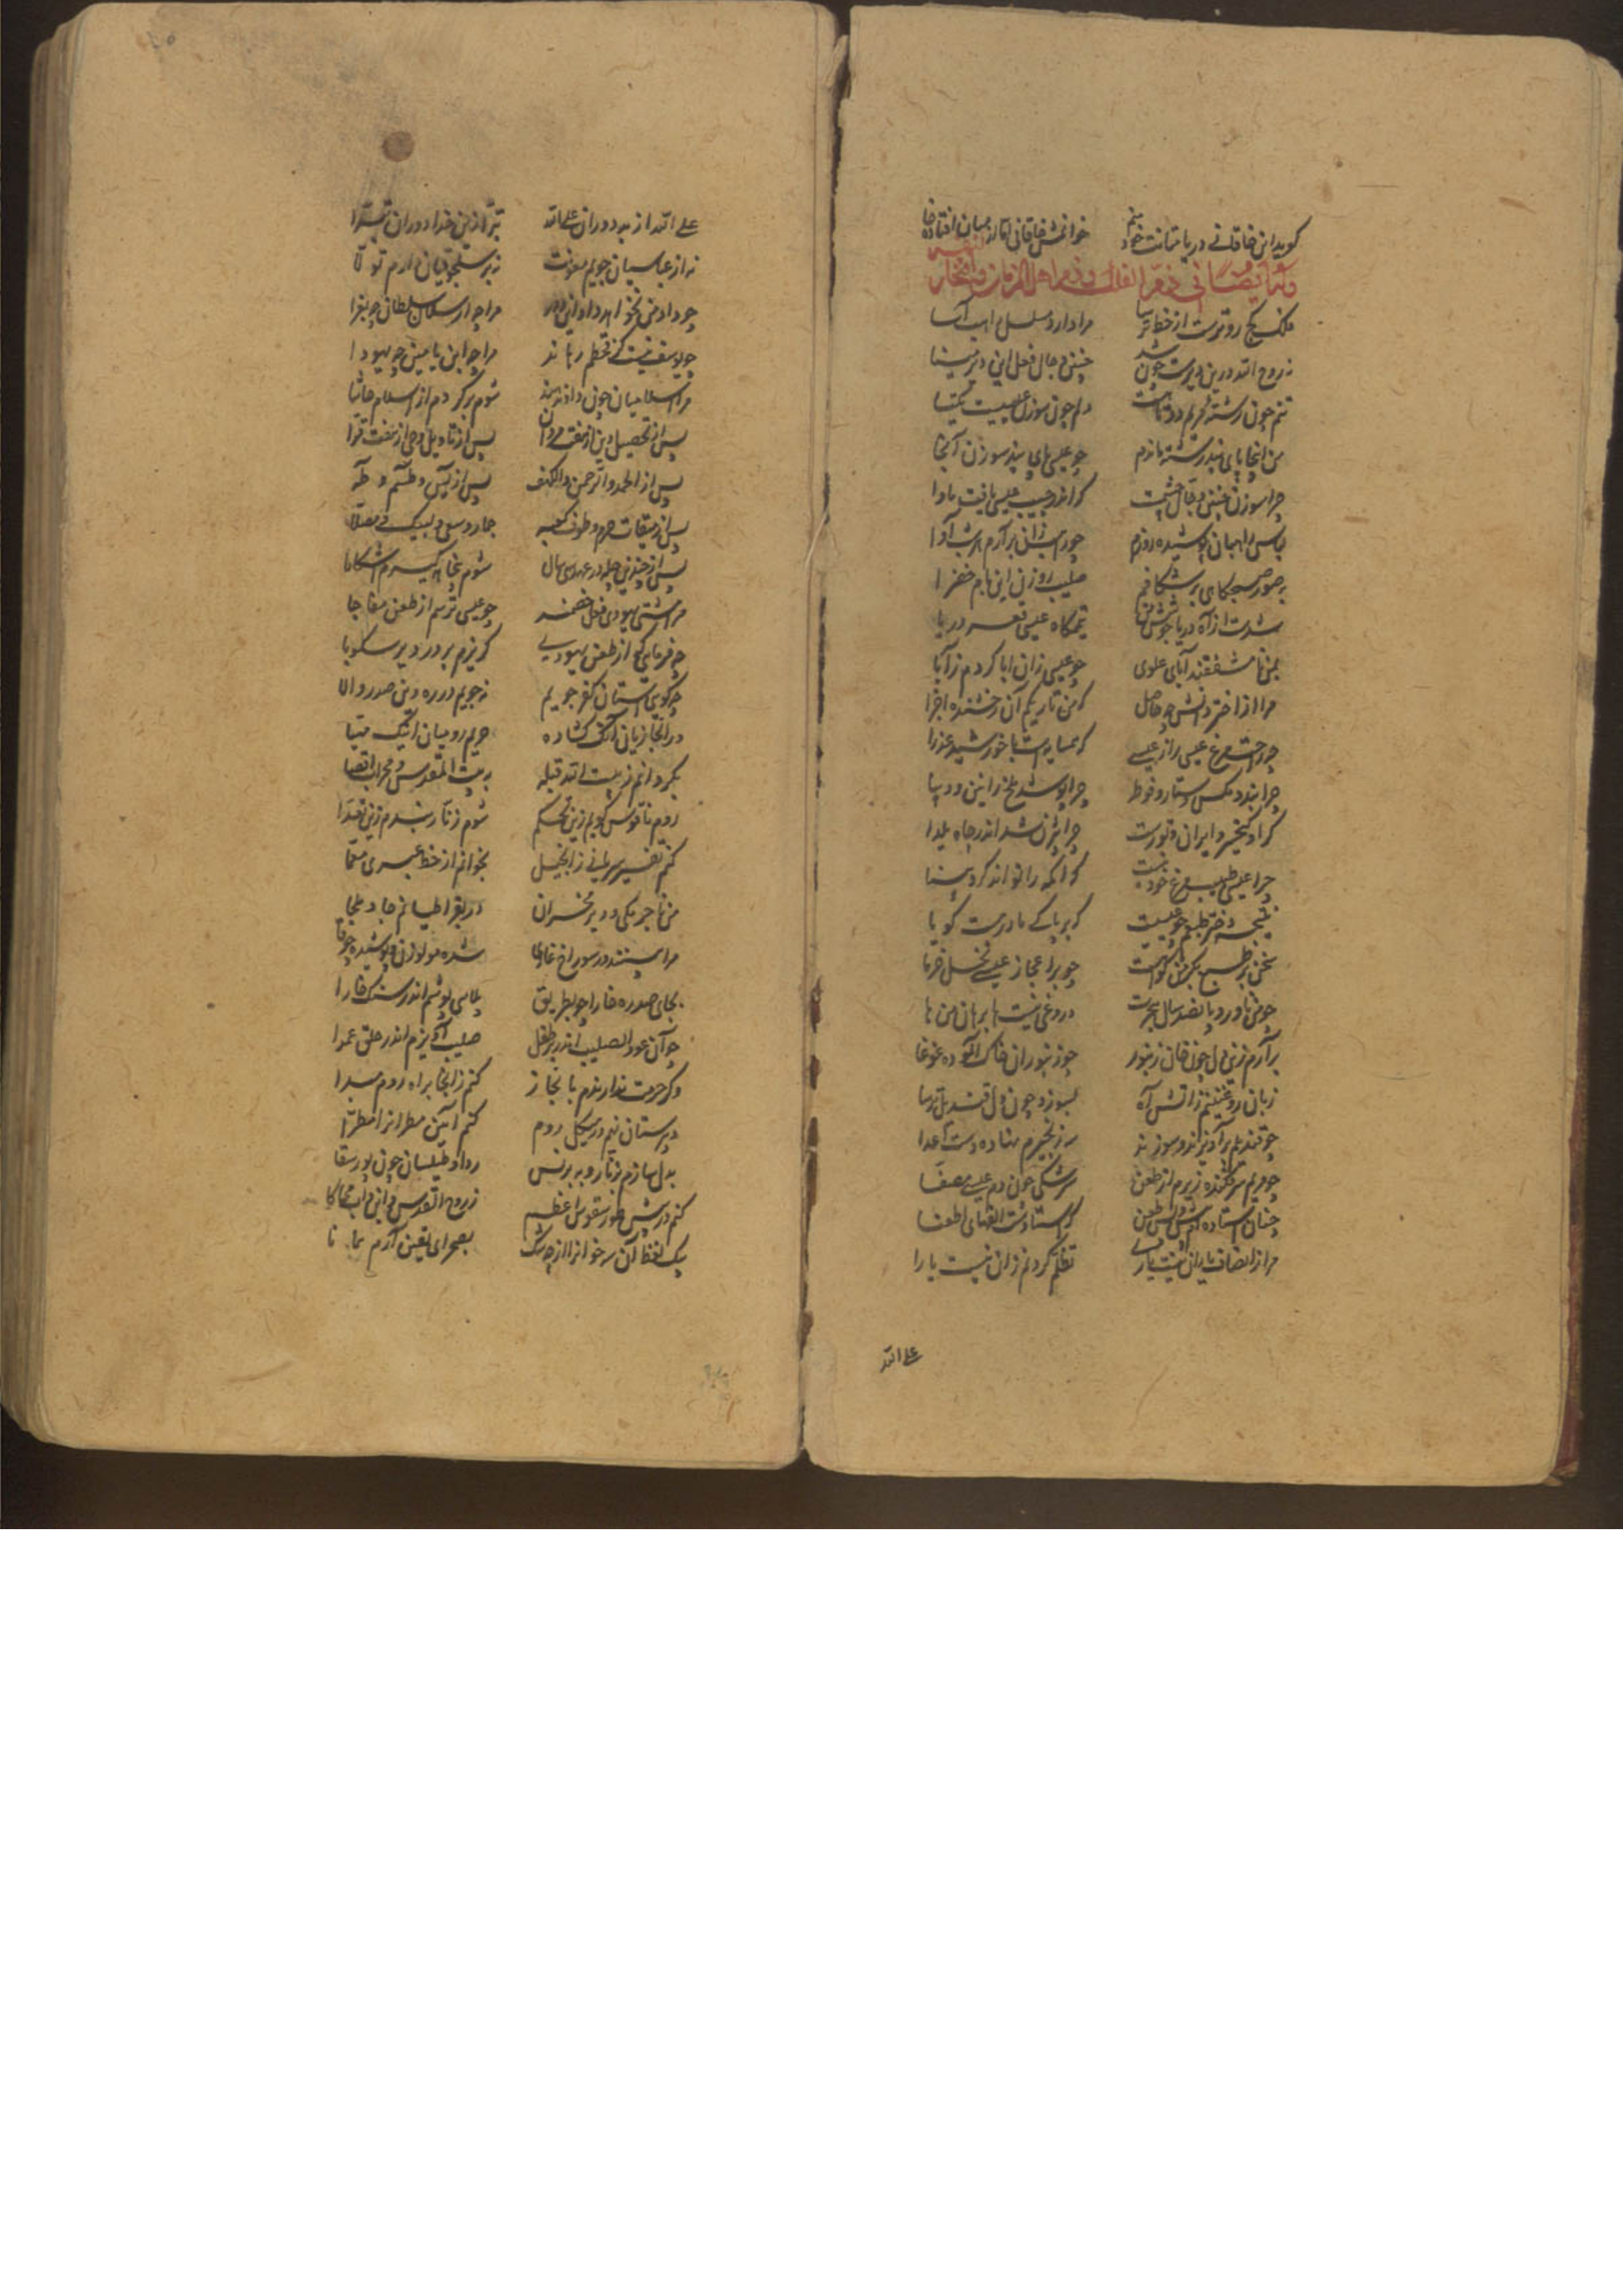 گوید این خاقانی دریا مثابت خود منم خوانمش خاقانی اما از میان افتاده قا
وله ایضا فی ذم الفلک و ذم اهل الزمان و افتخار
فلک کج روترست از خط ترسا مرا دارد مسلسل راهب آسا
نه روح الله درین دیرست چون شد چنین دجال فعل این دیر مینا
تنم چون رشته مریم دوتاست دلم چون سوزن عیسیست یکتا
من اینجا پای بند رشته ماندم چو عیسی پای بند سوزن آنجا
چرا سوزن چنین دجال چشمست که اندر جیب عیسی یافت ماوا
لباس راهبان پوشیده روزم چو راهب زان برآرم هر شب آوا
به صور صبحگاهی برشکافم صلیب روزن این بام خضرا
شدست از آه دریا جوشش من تیمم گاه عیسی قعر دریا
بمن نامشفقند آبای علوی چو عیسی زان ابا کردم ز آبا
مرا از اختر دانش چه حاصل که من تاریکم آن رخشنده اجزا
چه راحت مرغ عیسی را ز عیسی که همسایه است با خورشید عذرا
چرا بندد مگس دستار فوطه چرا پوشد ملخ رانین دیبا
گر او کیخسرو ایران و تورست چرا بیژن شد اندر چاه یلدا
چرا عیسی طبیب مرغ خود نیست که اکمه را تواند کرد بینا
نتیجه دختر طبعم چو عیسیست که بر پاکی مادر هست گویا
سخن بر طبع بکر من گواهست چو بر اعجاز عیسی نخل خرما
چو من ناورد پانصد سال هجرت دروغی نیست ها برهان من ها
برآرم زین دل چون خان زنبور چو زنبوران خاک آلوده غوغا
زبان روغنینم ز آتش آه بسوزد چون دل قندیل ترسا
چو قندیلم برآویزند و سوزند سه زنجیرم نهاده دست اعدا
چو مریم سرفکنده زیرم از طعن سرشکی چون دم عیسی مصفا
چنان استاده ام پیش و پس طعن که استادست الفهای اطعنا
مرا ز انصاف یاران نیست یاری تظلم کردنم زان نیست یارا
علی الله
علی الله از بد دوران علی الله تبرا از من خدا دوران تبرا
نه از عباسیان جویم معونت نه بر سلجوقیان دارم تولا
چو داد من نخواهد داد این دور مرا چه ارسلان سلطان چه بغرا
چو یوسف نیست کز قحطم رهاند مرا چه ابن یامین چه یهودا
مرا اسلامیان چون داد ندهند شوم برگردم از اسلام حاشا
پس از تحصیل دین از هفت مردان پس از تاویل وحی از هفت قرا
پس از الحمد و الرحمن و الکهف پس از یس و طسم و طه
پس از میقات حرم و طوف کعبه جمار و سعی و لبیک و مصلا
پس از چندین چله در عهد سی سال شوم پنجاهه گیرم آشکارا
مرا مشتی یهودی فعل خصمند چو عیسی ترسم از طعن مفاجا
چه فرمایی که از ظلم یهودی گریزم بر در دیر سکوبا
چه گویی آستان کفر جویم نجویم در ره دین صدر والا
در ابخازیان آنک گشاده حریم رومیان اینک مهیا
بگردانم ز بیت الله قبله به بیت المقدس و محراب اقصا
روم ناقوس بوسم زین تحکم شوم زنار بندم زین تعدا
کنم تفسیر سریانی ز انجیل بخوانم از خط عبری معما
من و ناجرمکی و دیر مخران در بقراطیانم جا و ملجا
مرا بینند در سوراخ غاری شده مولوزن و پوشیده چوخا
بجای صدره خارا چو بطریق پلاسی پوشم اندر سنگ خارا
چو آن عود الصلیب اندر بر طفل صلیب آویزم اندر حلق عمدا
وگر حرمت ندارندم به ابخاز کنم زآنجا براه روم مبدا
دبیرستان نهم در هیکل روم کنم آیین مطران را مطرا
بدل سازم بزنار و به برنس ردا و طیلسان چون پور سقا
کنم در پیش طرسقوس اعظم ز روح القدس و ابن و اب محاکا
بیک لفظ آن سه خوان را از چه شک بصحرای یقین آرم همانا